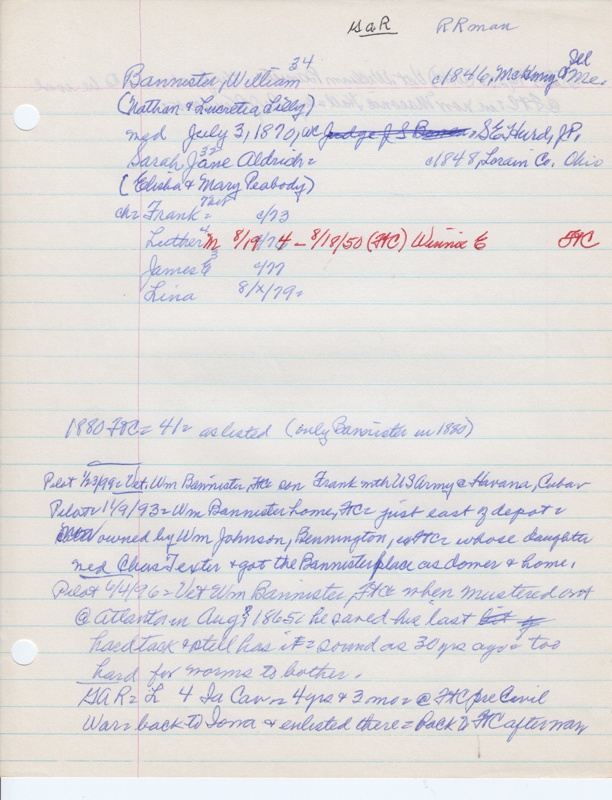 GAR RRman
Bannister, William 34 c1846, McHenry Co Ill Me.
(Nathan & Lucretia Lilly)
med July 3, 1870, WC Judge J S S E Hurd, J.P.
Sarah Jane 32 Aldrich = c1848, Lorain Co. Ohio
(Elisha & Mary Peabody)
ch = Frank = c/73
Luther M 4 8/19/74 - 8/18/50 (FtC) Winnie E FtC
James E 3 c/77
Lina 8/x/79 =
1880 FtC = 41 = as listed (only Bannister in 1880)
Pilot 1/23/99 = Vet. Wm Bannister, FtC = son Frank with US Army @ Havana, Cuba
Pilot 11/9/93 = Wm Bannister home, FtC = just east of depot =
owned by Wm Johnson, Bennington, FtC = whose daughter
med Chas Texter & got the Bannister place as dower & home.
Pilot 6/4/96 = Vet Wm Bannister, FtC = when mustered out
@ Atlanta in Aug 1865 he saved his last
hardtack & still has it = sound as 30 yrs ago = too
hard for worms to bother.
GAR = L 4 Ia Cav = 4 yrs & 3 mo = @ FtC pre Civil
War = back to Iowa & enlisted there = Back to FtC after war